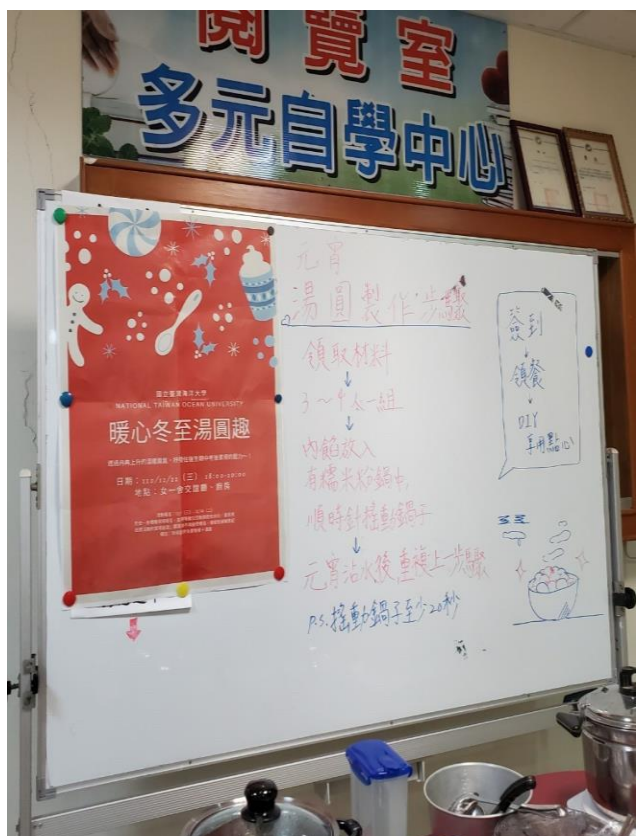 閱覽室
多元自學中心
國立臺灣海洋大學
NATIONAL TAIWAN OCEAN UNIVERSITY
暖心冬至湯圓趣
日期：110/12/22（三）18:00-20:00
地點：女一舍交誼廳、廚房
元宵
湯圓製作步驟
領取材料
↓
3～4人一組
↓
內餡放入
有糯米粉鍋中,
順時針搖動鍋子
↓
元宵沾水後重複上一步驟
P.S.搖動鍋子至少20秒
簽到
↓
領餐
↓
DIY
享用點心